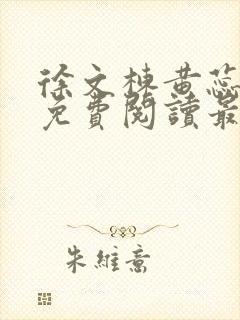 徐文棟黄蕊
免費閱讀最
朱維意